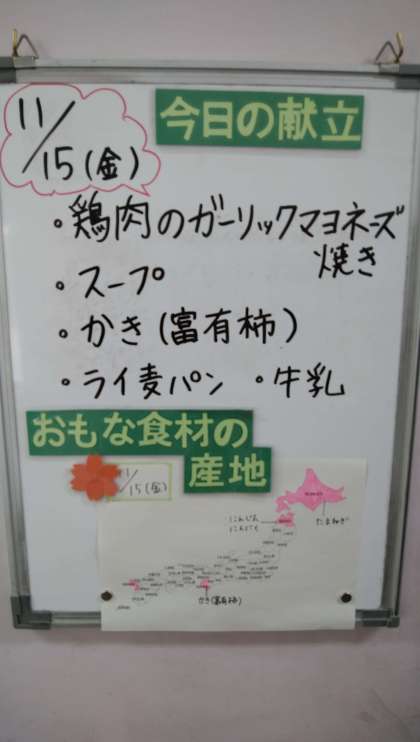 11/15(金)
今日の献立
・鶏肉のガーリックマヨネーズ
焼き
・スープ
・かき(富有柿)
・ライ麦パン ・牛乳
おもな食材の
産地
11/15(金)
にんじん
にんにく
たまねぎ
かき(富有柿)